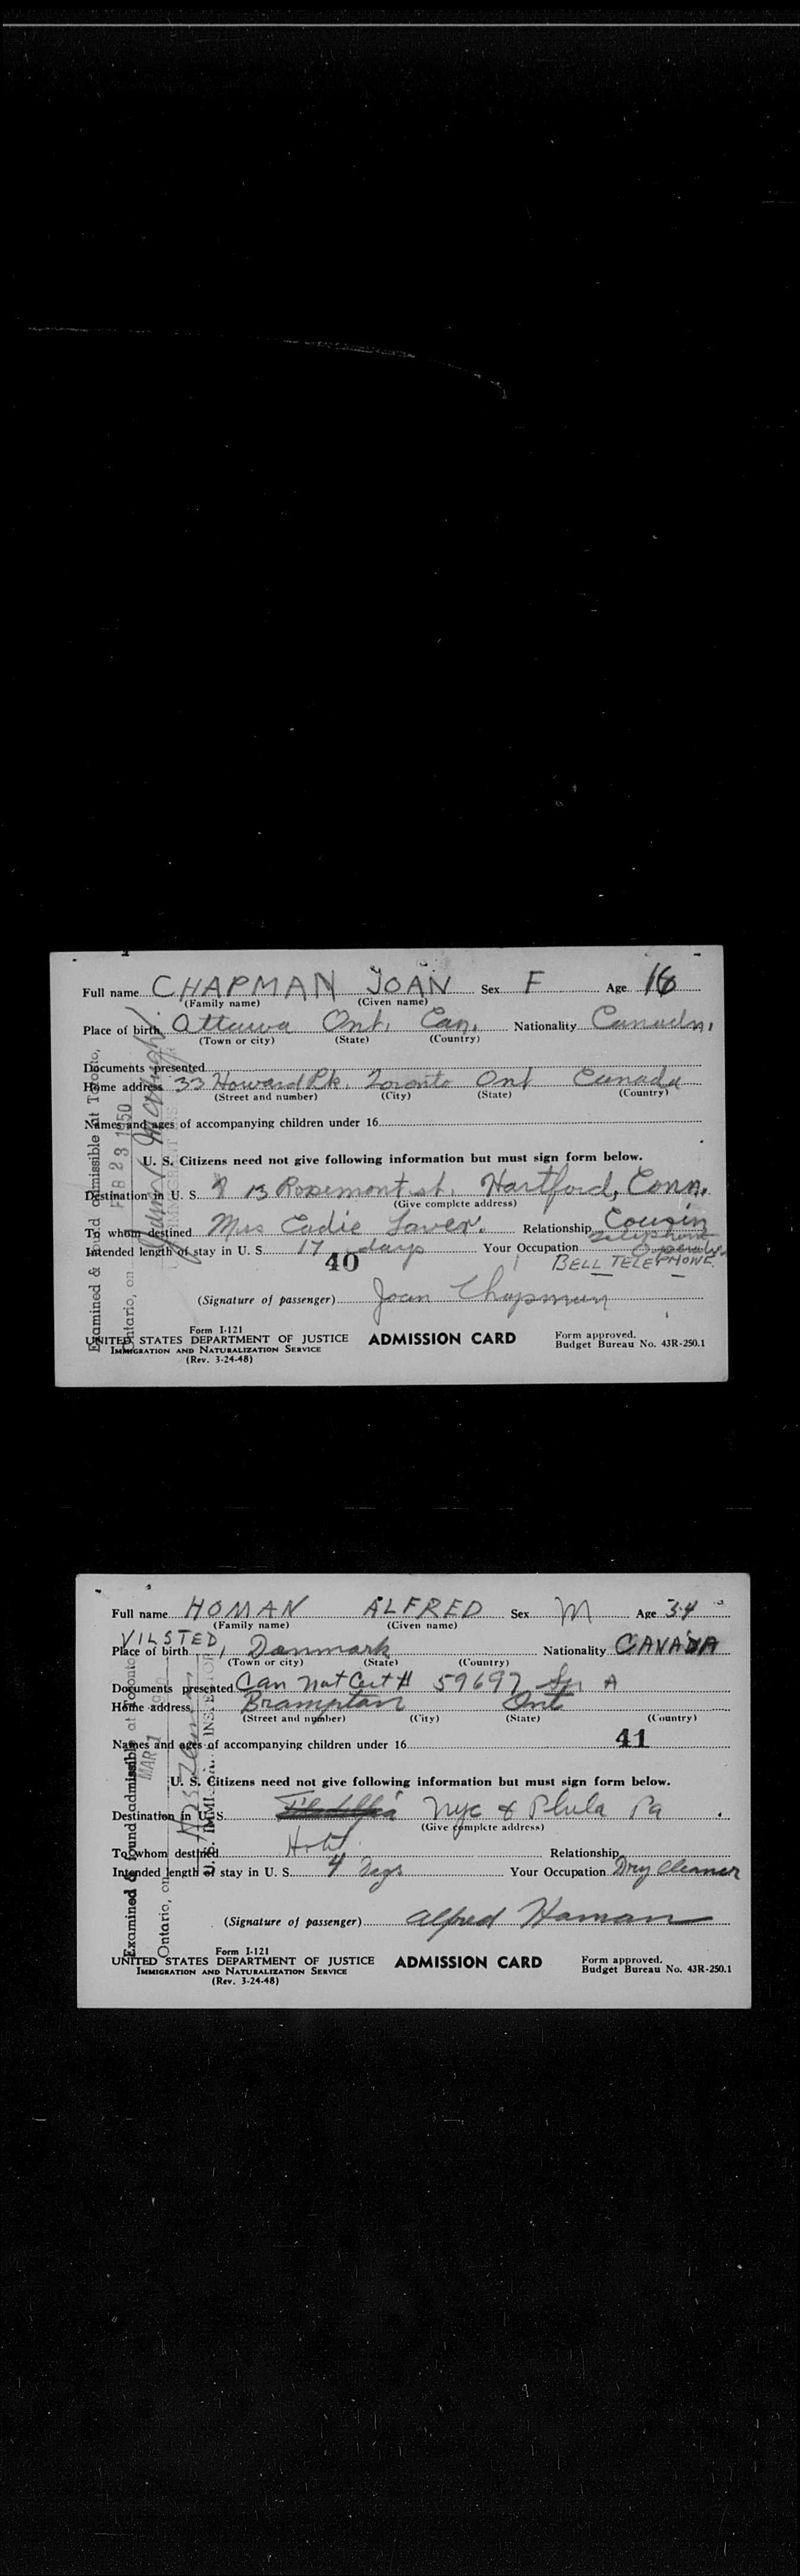 Full name CHAPMAN JOAN Sex F Age 16
(Family name) (Given name)
Place of birth Ottawa Ont. Can. Nationality Canadn.
(Town or city) (State) (Country)
Documents presented
Home address 33 Howard Pk. Toronto Ont Canada
(Street and number) (City) (State) (Country)
Names and ages of accompanying children under 16
U. S. Citizens need not give following information but must sign form below.
Destination in U. S. 13 Rosemont st. Hartford, Conn.
(Give complete address)
To whom destined Mrs Eadie Laver. Relationship Cousin
Telephone
Intended length of stay in U. S. 17 days Your Occupation Operator
40 BELL TELEPHONE
(Signature of passenger) Joan Chapman
Form I-121
UNITED STATES DEPARTMENT OF JUSTICE ADMISSION CARD Form approved.
IMMIGRATION AND NATURALIZATION SERVICE Budget Bureau No. 43R-250.1
(Rev. 3-24-48)
Examined & found admissible at Toronto,
Ontario, on FEB 23 1950
Full name HOMAN ALFRED Sex M Age 34
(Family name) (Given name)
VILSTED,
Place of birth Danmark Nationality CANADA
(Town or city) (State) (Country)
Documents presented Can Nat Cert # 59697 Ser A
Home address Brampton Ont
(Street and number) (City) (State) (Country)
Names and ages of accompanying children under 16 41
U. S. Citizens need not give following information but must sign form below.
Destination in U. S. Nyc & Phila Pa
(Give complete address)
To whom destined Hotel Relationship
Intended length of stay in U. S. 4 Days Your Occupation Dry Cleaner
(Signature of passenger) Alfred Homan
Form I-121
UNITED STATES DEPARTMENT OF JUSTICE ADMISSION CARD Form approved.
IMMIGRATION AND NATURALIZATION SERVICE Budget Bureau No. 43R-250.1
(Rev. 3-24-48)
Examined & found admissible at Toronto
Ontario, on MAR 1